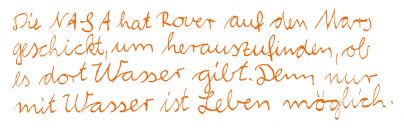 Die NASA hat Rover auf den Mars
geschickt, um herauszufinden, ob
es dort Wasser gibt. Denn nur
mit Wasser ist Leben möglich.